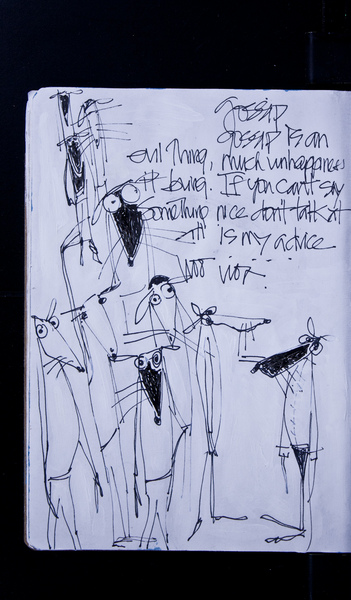 gossip
gossip is an
evil thing, much unhappiness
it bring. If you can't say
something nice don't talk at
all is my advice